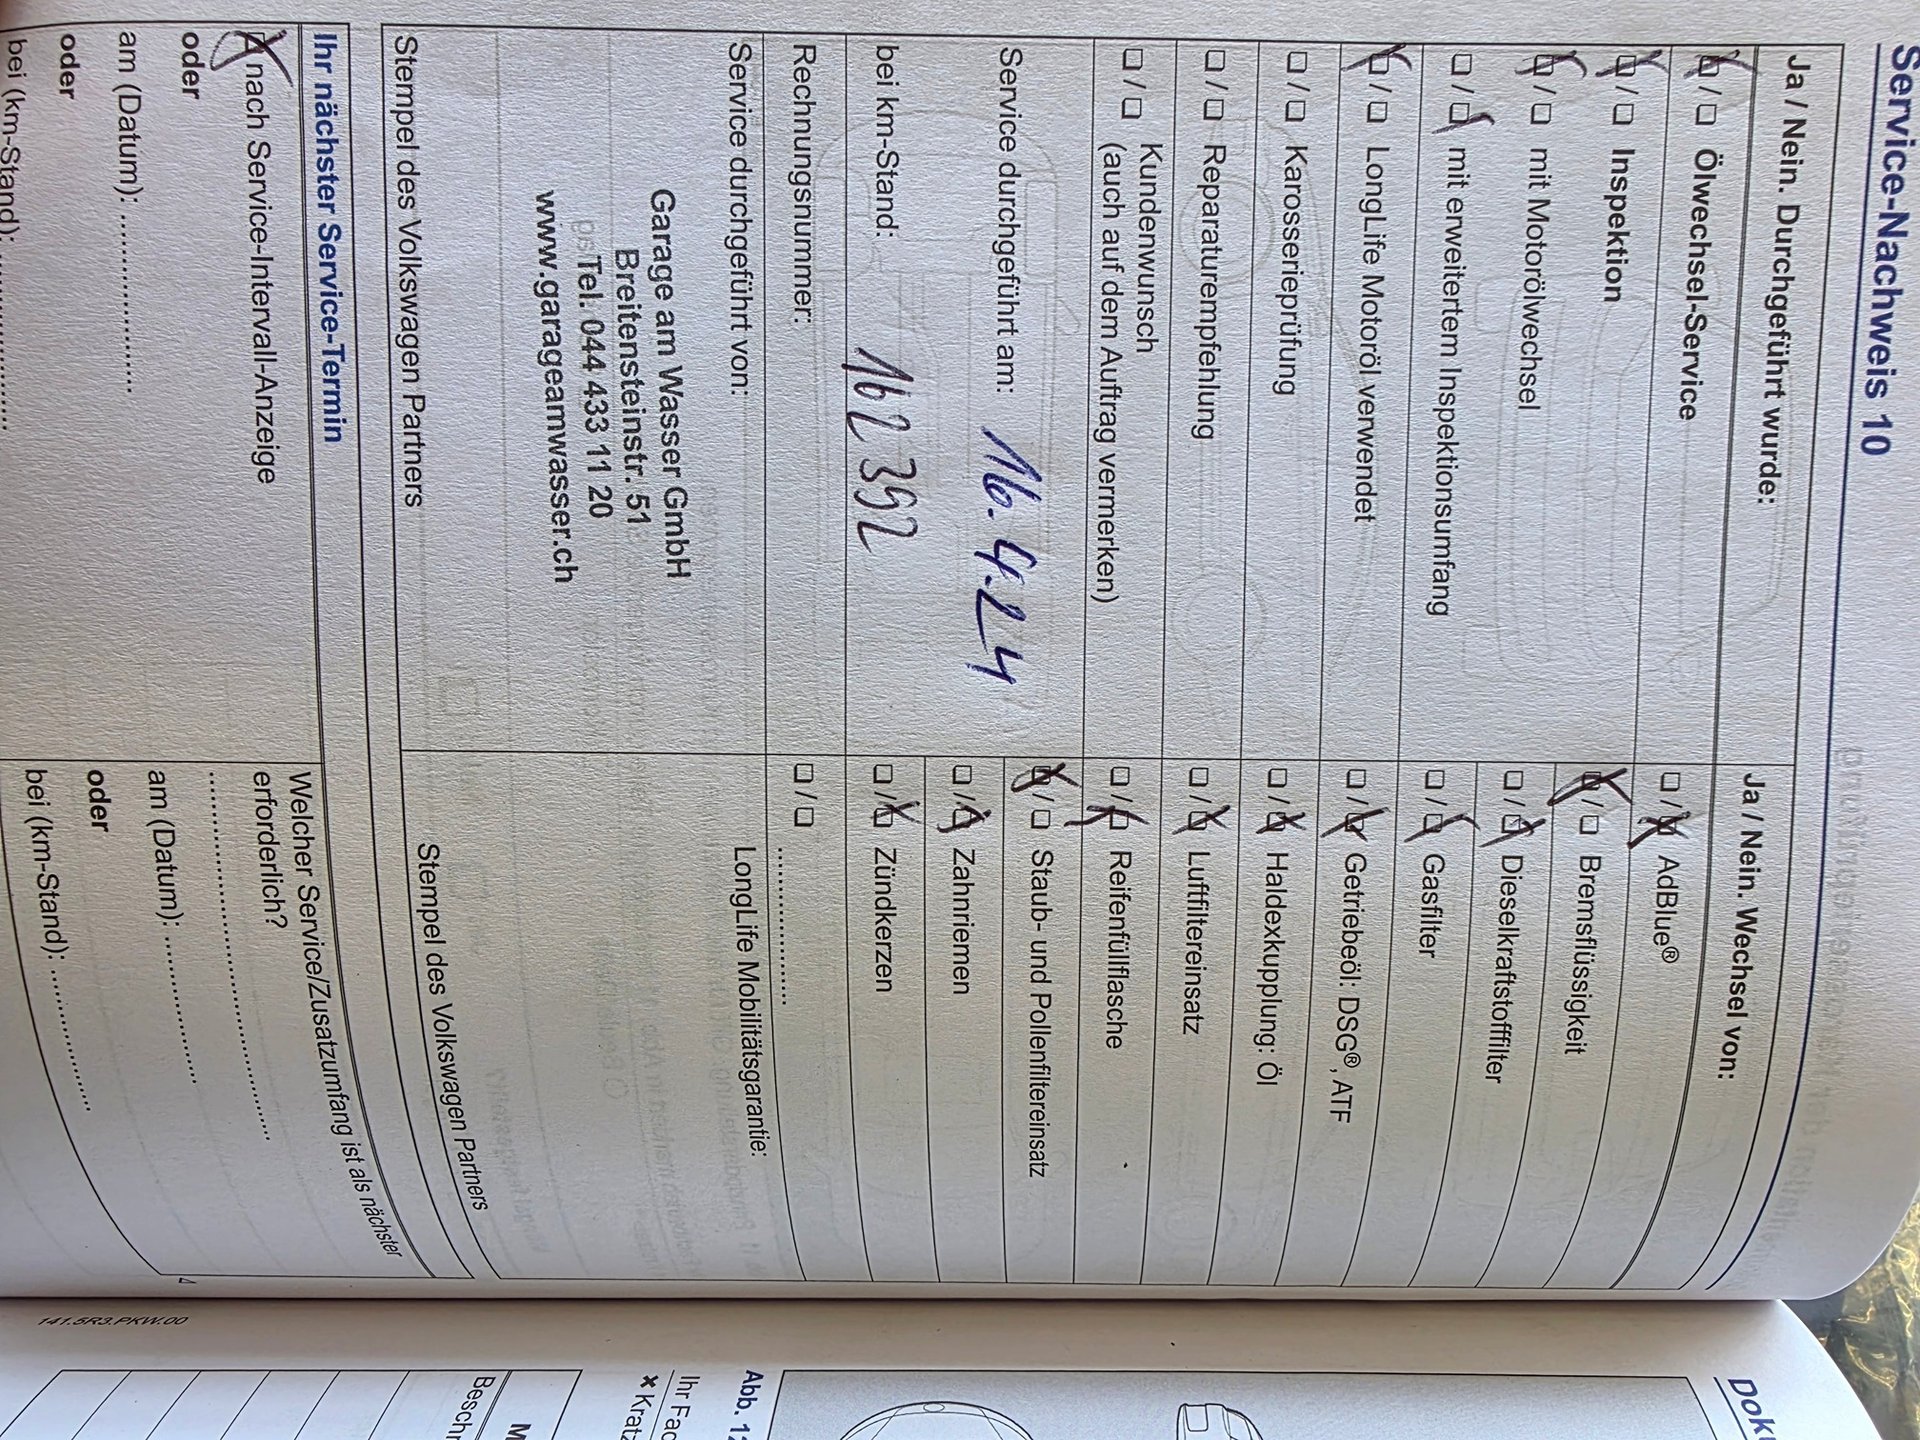 Service-Nachweis 10
Ja / Nein. Durchgeführt wurde:
☒ / ☐ Ölwechsel-Service
☒ / ☐ Inspektion
☒ / ☐ mit Motorölwechsel
☐ / ☒ mit erweitertem Inspektionsumfang
☒ / ☐ LongLife Motoröl verwendet
☐ / ☐ Karosserieprüfung
☐ / ☐ Reparaturempfehlung
☐ / ☐ Kundenwunsch
(auch auf dem Auftrag vermerken)
Service durchgeführt am: 16.4.24
bei km-Stand: 162392
Rechnungsnummer:
Service durchgeführt von:
Garage am Wasser GmbH
Breitensteinstr. 51
Tel. 044 433 11 20
www.garageamwasser.ch
Stempel des Volkswagen Partners
Ja / Nein. Wechsel von:
☐ / ☒ AdBlue®
☒ / ☐ Bremsflüssigkeit
☐ / ☒ Dieselkraftstofffilter
☐ / ☒ Gasfilter
☐ / ☒ Getriebeöl: DSG®, ATF
☐ / ☒ Haldexkupplung: Öl
☐ / ☒ Luftfiltereinsatz
☐ / ☒ Reifenfüllflasche
☒ / ☐ Staub- und Pollenfiltereinsatz
☐ / ☒ Zahnriemen
☐ / ☒ Zündkerzen
☐ / ☐ ....................
LongLife Mobilitätsgarantie:
Stempel des Volkswagen Partners
Ihr nächster Service-Termin
☒ nach Service-Intervall-Anzeige
oder
am (Datum): ....................
oder
bei (km-Stand): ....................
Welcher Service/Zusatzumfang ist als nächster
erforderlich?
........................................
am (Datum): ....................
oder
bei (km-Stand): ....................
141.5R3.PKW.00
Abb. 12